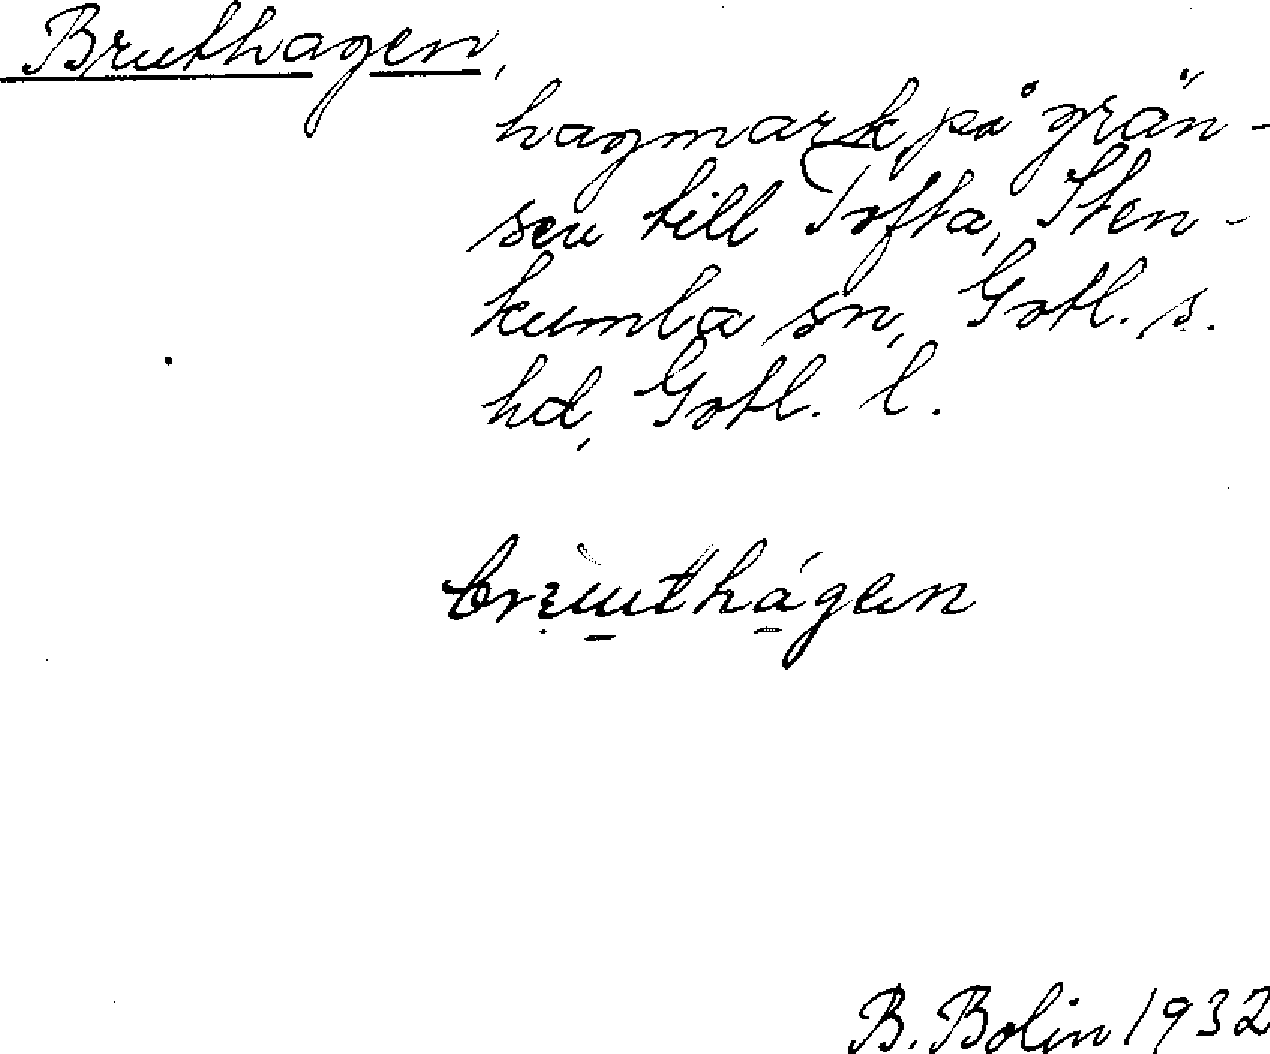 Bruthagen,
hagmark på grän-
sen till Tofta, Sten-
kumla sn, Gotl. s.
hd, Gotl. l.
B. Bolin 1932